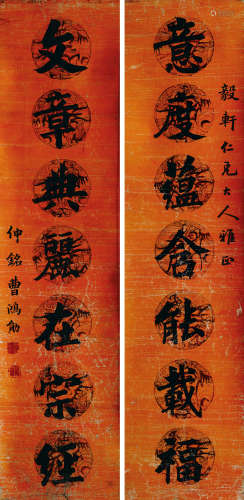 毅軒仁兄大人雅正
意度蘊含能載福
文章典麗在崇經
仲銘曹鴻勛